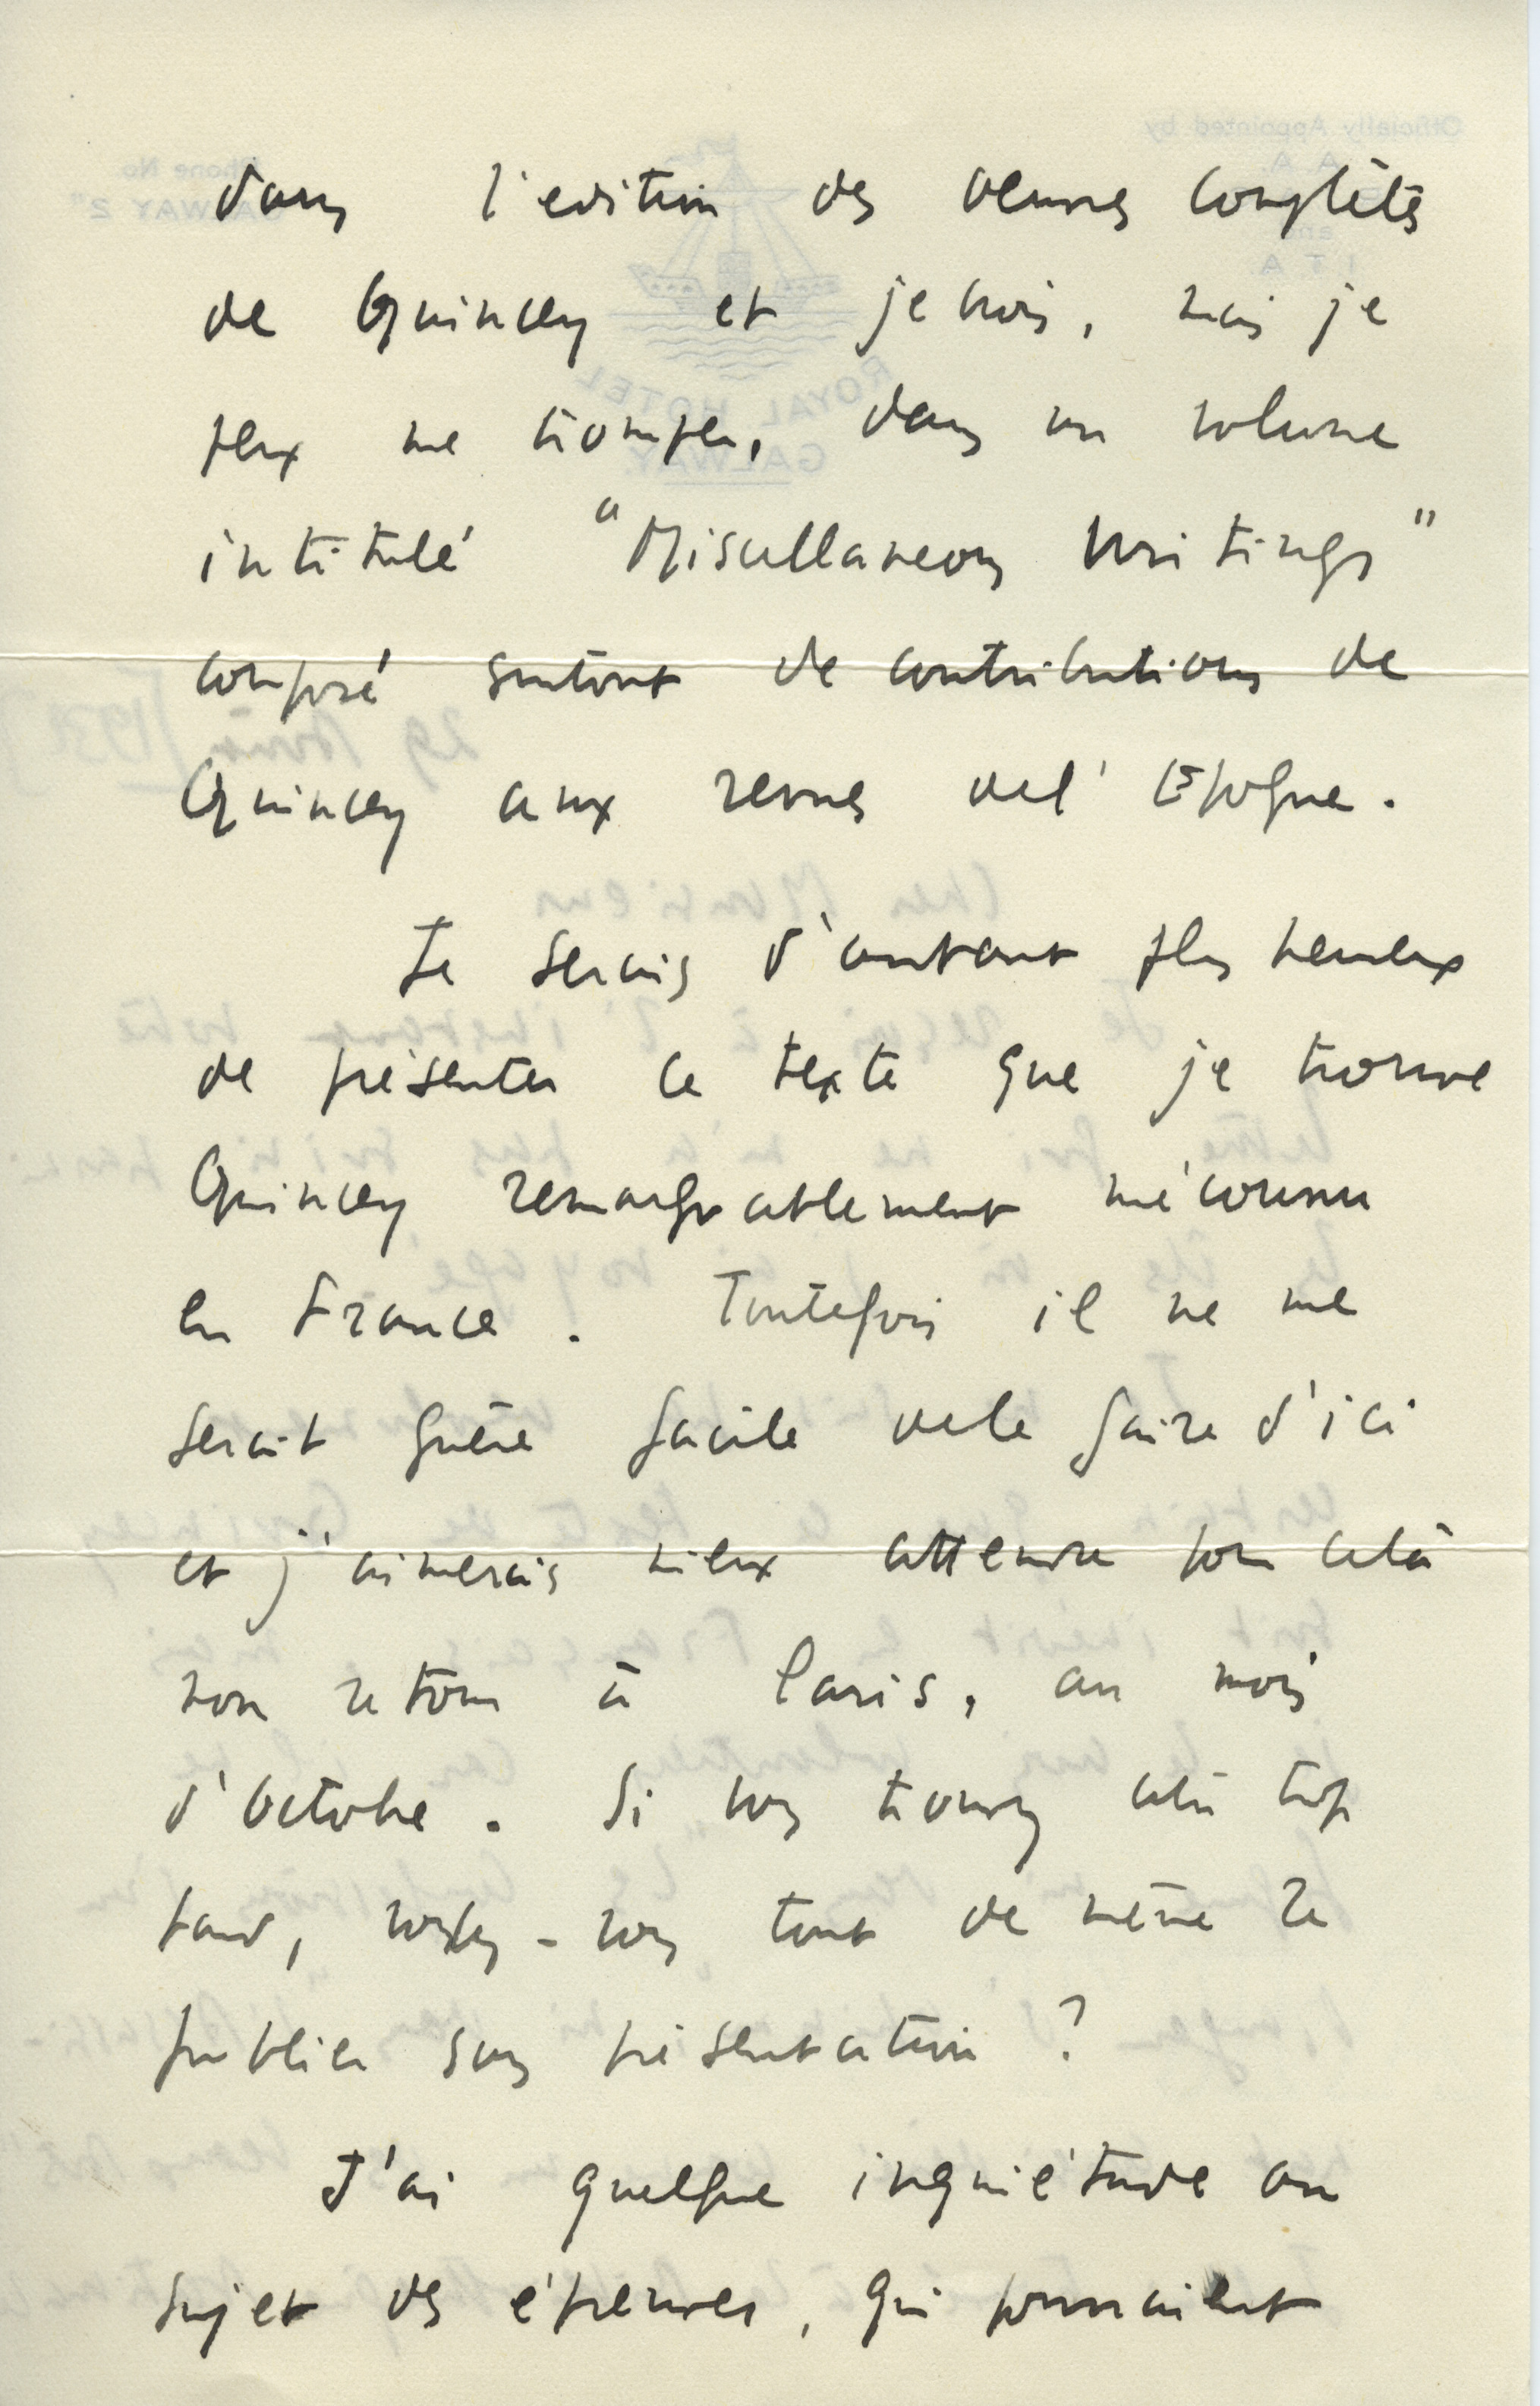 dans l'edition des oeuvres complètes
de Quincey et je crois, mais je
peux me tromper, dans un volume
intitulé "Miscellaneous Writings"
composé surtout de contributions de
Quincey aux revues de l'Epoque.
Je serais d'autant plus heureux
de présenter ce texte que je trouve
Quincey remarquablement méconnu
en France. Toutefois il ne me
serait guère facile de le faire d'ici
et j'aimerais mieux attendre pour celà
mon retour à Paris, au mois
d'Octobre. Si vous trouvez celà trop
tard, voulez-vous tout de même le
publier sans présentation ?
J'ai quelque inquiétude au
sujet des épreuves, qui pourraient